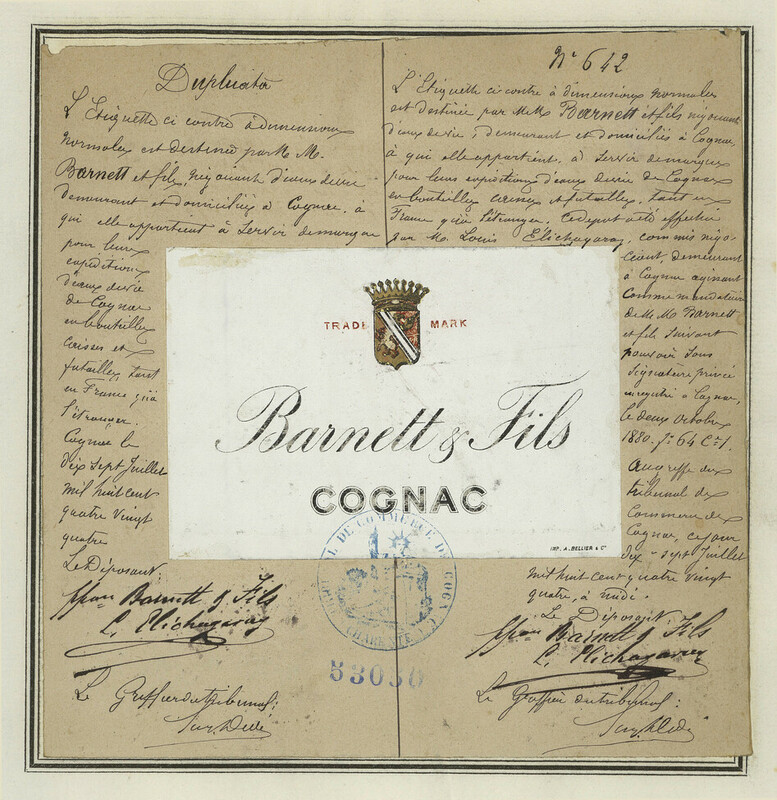 Duplicata
L'Etiquette ci contre à dimensions
normales est destinée par M. M.
Barnett et fils, négociants d'eaux de vie
demeurant et domiciliés à Cognac, à
qui elle appartient à servir de marque
pour leurs
expéditions
d'eaux de vie
de Cognac
en bouteilles
caisses et
futailles, tant
en France qu'à
l'étranger.
Cognac le
dix sept Juillet
mil huit cent
quatre vingt
quatre
Le Déposant
Barnett & Fils
L. Elichagaray
Le Greffier du tribunal:
N° 642
L'Etiquette ci contre à dimensions normales
est destinée par M.M. Barnett et fils négociants
d'eaux de vie, demeurant et domiciliés à Cognac,
à qui elle appartient, à servir de marque
pour leurs expéditions d'eaux de vie de Cognac
en bouteilles caisses et futailles, tant en
France qu'à l'étranger. Ce dépôt a été effectué
par M. Louis Elichagaray, commis négo-
ciant, demeurant
à Cognac agissant
comme mandataire
de M. M. Barnett
et fils suivant
pouvoir sous
signature privée
enregistré à Cognac,
le deux Octobre
1880. f° 64 C° 1.
Au greffe du
tribunal de
Commerce de
Cognac, ce jour
dix-sept Juillet
mil huit cent quatre vingt
quatre, à midi.
Le Déposant
Barnett & Fils
L. Elichagaray
Le Greffier du tribunal:
TRADE MARK
Barnett & Fils
COGNAC
IMP. A. BELLIER & Cie
DE COMMERCE DE COGNAC
CHARENTE
53030